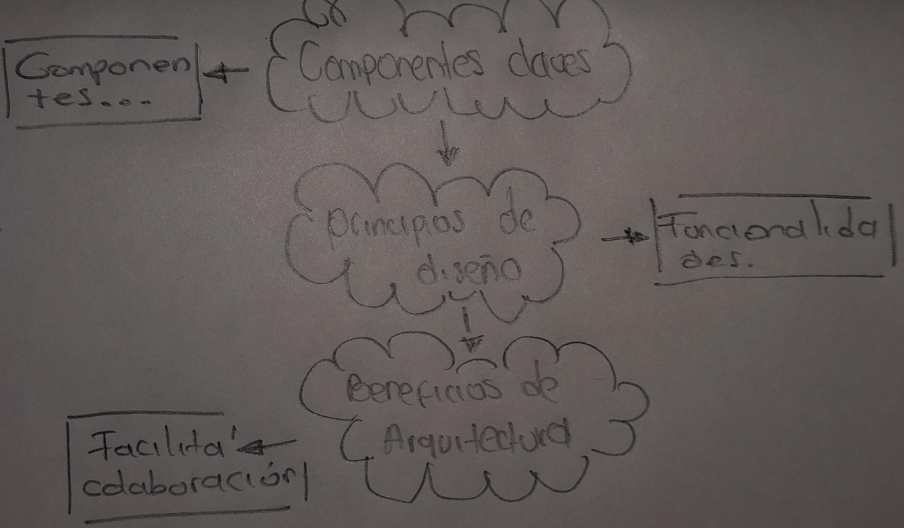 Componentes claves
Componen
tes...
principios de
diseño
Funcionalida
des.
Beneficios de
Arquitectura
Facilita
colaboración